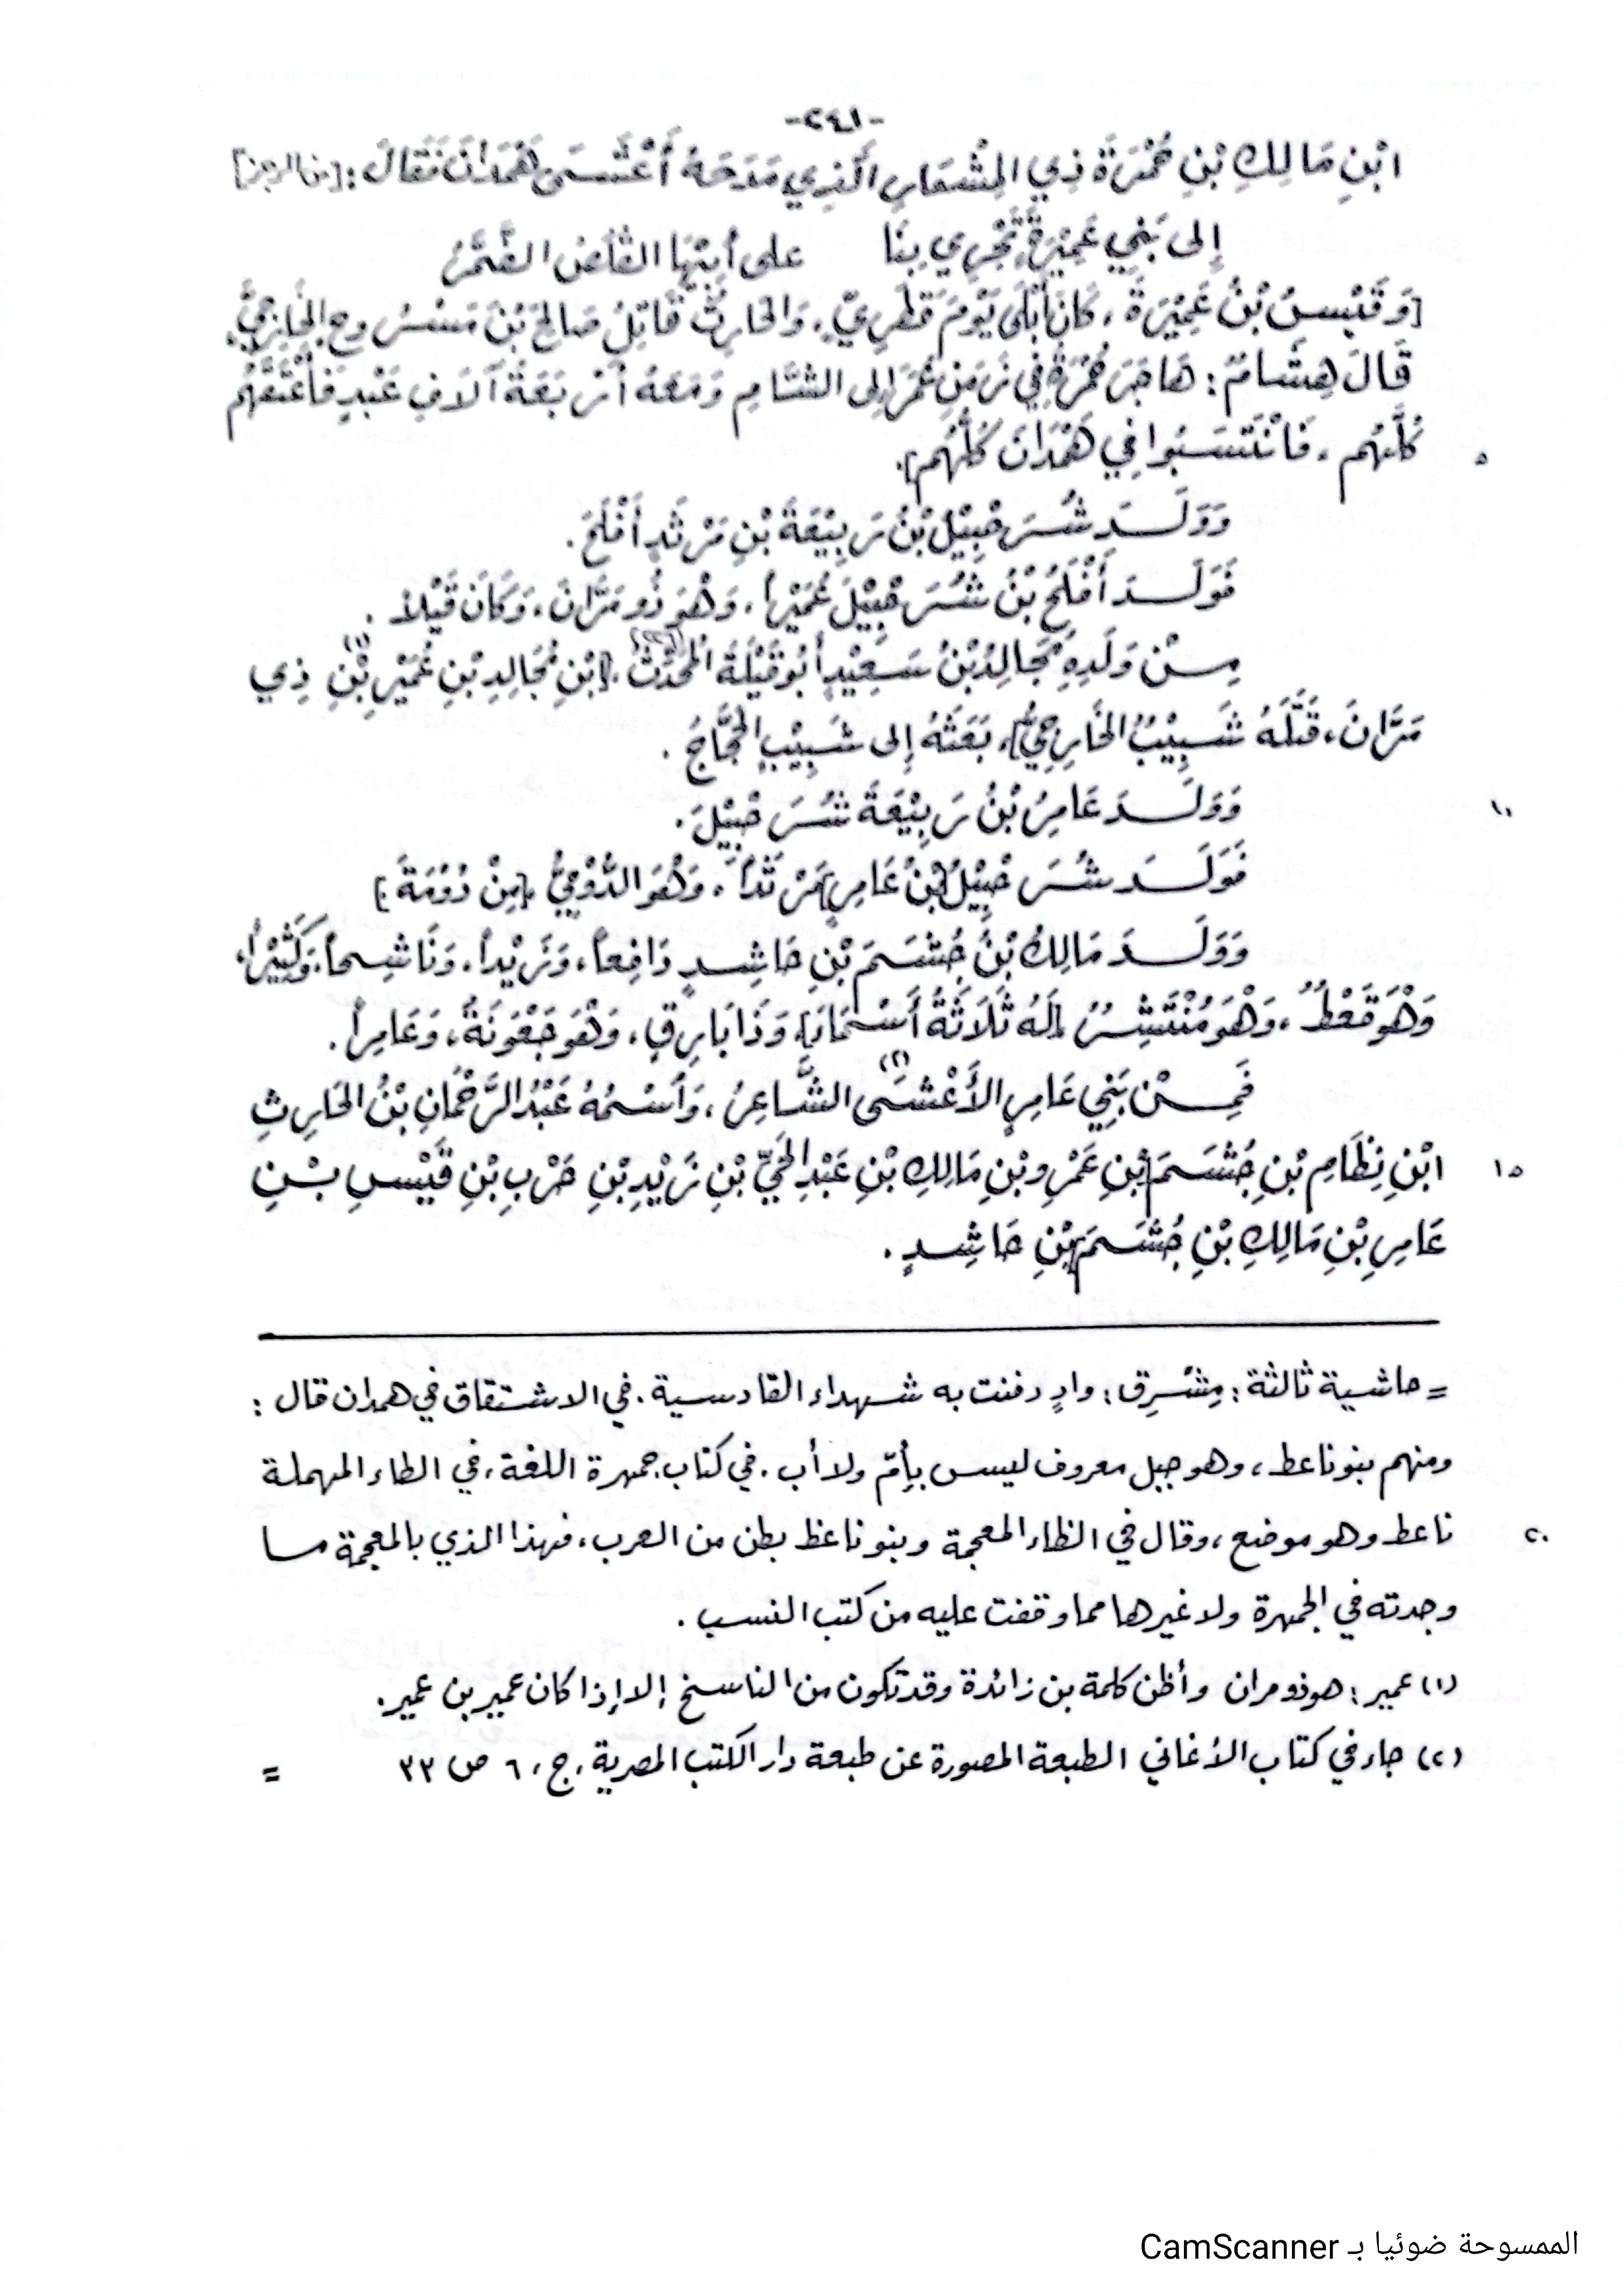 -٢٤١-
ابْنِ مَالِكِ بْنِ حُمْرَةَ ذِي المِشْعَارِ الَّذِي مَدَحَهُ أَعْشَى هَمْدَانَ فَقَالَ : [من الرجز]
إِلى بَنِي عَمِيْرَةٍ تَجْرِي بِنَا على أَيْنِهَا القَلَصُ الضُّمَّرُ
[وَقَيْسُ بْنُ عَمِيْرَةَ ، كَانَ أَبْلَى يَوْمَ قَطَرِيٍّ ، وَالحَارِثُ قَاتِلُ صَالِحَ بْنَ مَسْرُوحٍ الخَارِجِيَّ،
قَالَ هِشَامٌ : هَاجَرَ حُمْرَةُ فِي زَمَنِ عُمَرَ إِلى الشَّامِ وَمَعَهُ أَرْبَعَةُ آلَافِ عَبْدٍ فَأَعْتَقَهُم
كُلَّهُم ، فَانْتَسَبُوا فِي هَمْدَانَ كُلُّهُم]. ٥
وَوَلَدَ شُرَحْبِيْلُ بْنُ رَبِيْعَةَ بْنِ مَرْثَدٍ أَفْلَحَ .
فَوَلَدَ أَفْلَحُ بْنُ شُرَحْبِيْلَ عُمَيْراً ، وَهْوَ ذُو مَرَّانَ ، وَكَانَ قَيْلاً .
مِنْ وَلَدِهِ مُجَالِدُ بْنُ سَعِيْدٍ أَبُو قَيْلَةَ المُحَدِّثُ ، [ابْنِ مُجَالِدِ بْنِ عُمَيْرِ بْنِ (١) ذِي
مَرَّانَ ، قَتَلَهُ شَبِيْبُ الخَارِجِيُّ] ، بَعَثَهُ إِلى شَبِيْبٍ الحَجَّاجُ .
وَوَلَدَ عَامِرُ بْنُ رَبِيْعَةَ شُرَحْبِيْلَ . ١٠
فَوَلَدَ شُرَحْبِيْلُ [بْنُ عَامِرٍ] مَرْثَداً ، وَهْوَ الدُّوْمِيُّ ، [مِنْ دُوْمَةَ .]
وَوَلَدَ مَالِكُ بْنُ جُشَمَ بْنِ حَاشِدٍ دَافِعاً ، وَزَيْداً ، وَنَاشِحاً ، وَكَثِيْراً ،
وَهْوَ قَعْطٌ ، وَهْوَ مُنْتَشِرُ ، [لَهُ ثَلَاثَةُ أَسْمَاءَ] وَذَا بَارِقٍ ، وَهْوَ جَعْوَنَةُ ، وَعَامِراً .
فَمِنْ بَنِي عَامِرٍ الأَعْشَى (٢) الشَّاعِرُ ، وَاسْمُهُ عَبْدُ الرَّحْمَانِ بْنُ الحَارِثِ
ابْنِ نِظَامِ بْنِ جُشَمَ [بْنِ عَمْرِو بْنِ مَالِكِ بْنِ عَبْدِ الحَيِّ بْنِ زَيْدِ بْنِ حَرْبِ بْنِ قَيْسِ بْنِ ١٥
عَامِرِ بْنِ مَالِكِ بْنِ جُشَمَ] بْنِ حَاشِدٍ .
= حاشية ثالثة : مِشْرِق : وادٍ دفنت به شهداء القادسية . في الاشتقاق في همدان قال :
ومنهم بنو ناعط ، وهو جبل معروف ليس بأمّ ولا أب . في كتاب جمهرة اللغة ، في الطاء المهملة
ناعط وهو موضع ، وقال في الظاء المعجمة وبنو ناعظ بطن من العرب ، فهذا الذي بالمعجمة ما ٢٠
وجدته في الجمهرة ولا غيرها مما وقفت عليه من كتب النسب .
(١) عمير : هو ذو مران وأظن كلمة بن زائدة وقد تكون من الناسخ إلا إذا كان عمير بن عمير .
(٢) جاء في كتاب الأغاني الطبعة المصورة عن طبعة دار الكتب المصرية ، ج ، ٦ ص ٣٣ =
الممسوحة ضوئيا بـ CamScanner